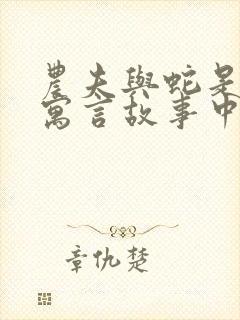 農夫與蛇是
寓言故事中
章仇楚